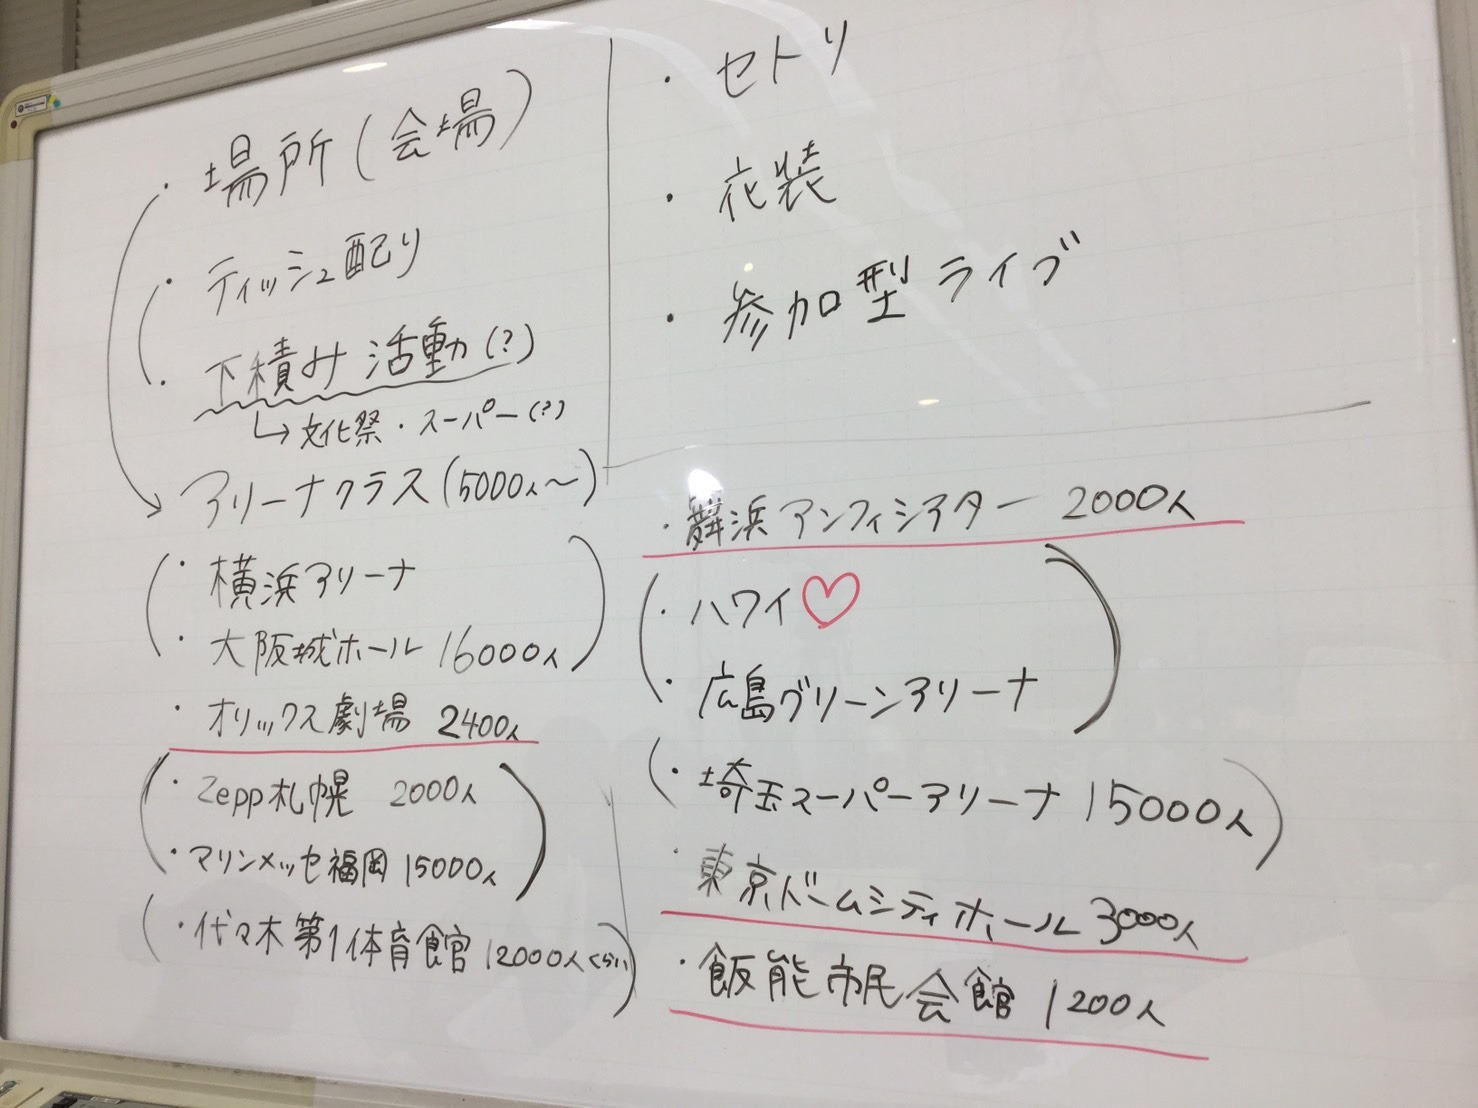 ・場所(会場)
・ティッシュ配り
・下積み活動(?)
↳文化祭・スーパー(?)
アリーナクラス(5000人〜)
(・横浜アリーナ
・大阪城ホール 16000人)
・オリックス劇場 2400人
(・Zepp札幌 2000人
・マリンメッセ福岡 15000人)
(・代々木第1体育館 12000人くらい)
・セトリ
・衣装
・参加型ライブ
・舞浜アンフィシアター 2000人
(・ハワイ♡
・広島グリーンアリーナ)
(・埼玉スーパーアリーナ 15000人)
・東京ドームシティホール 3000人
・飯能市民会館 1200人